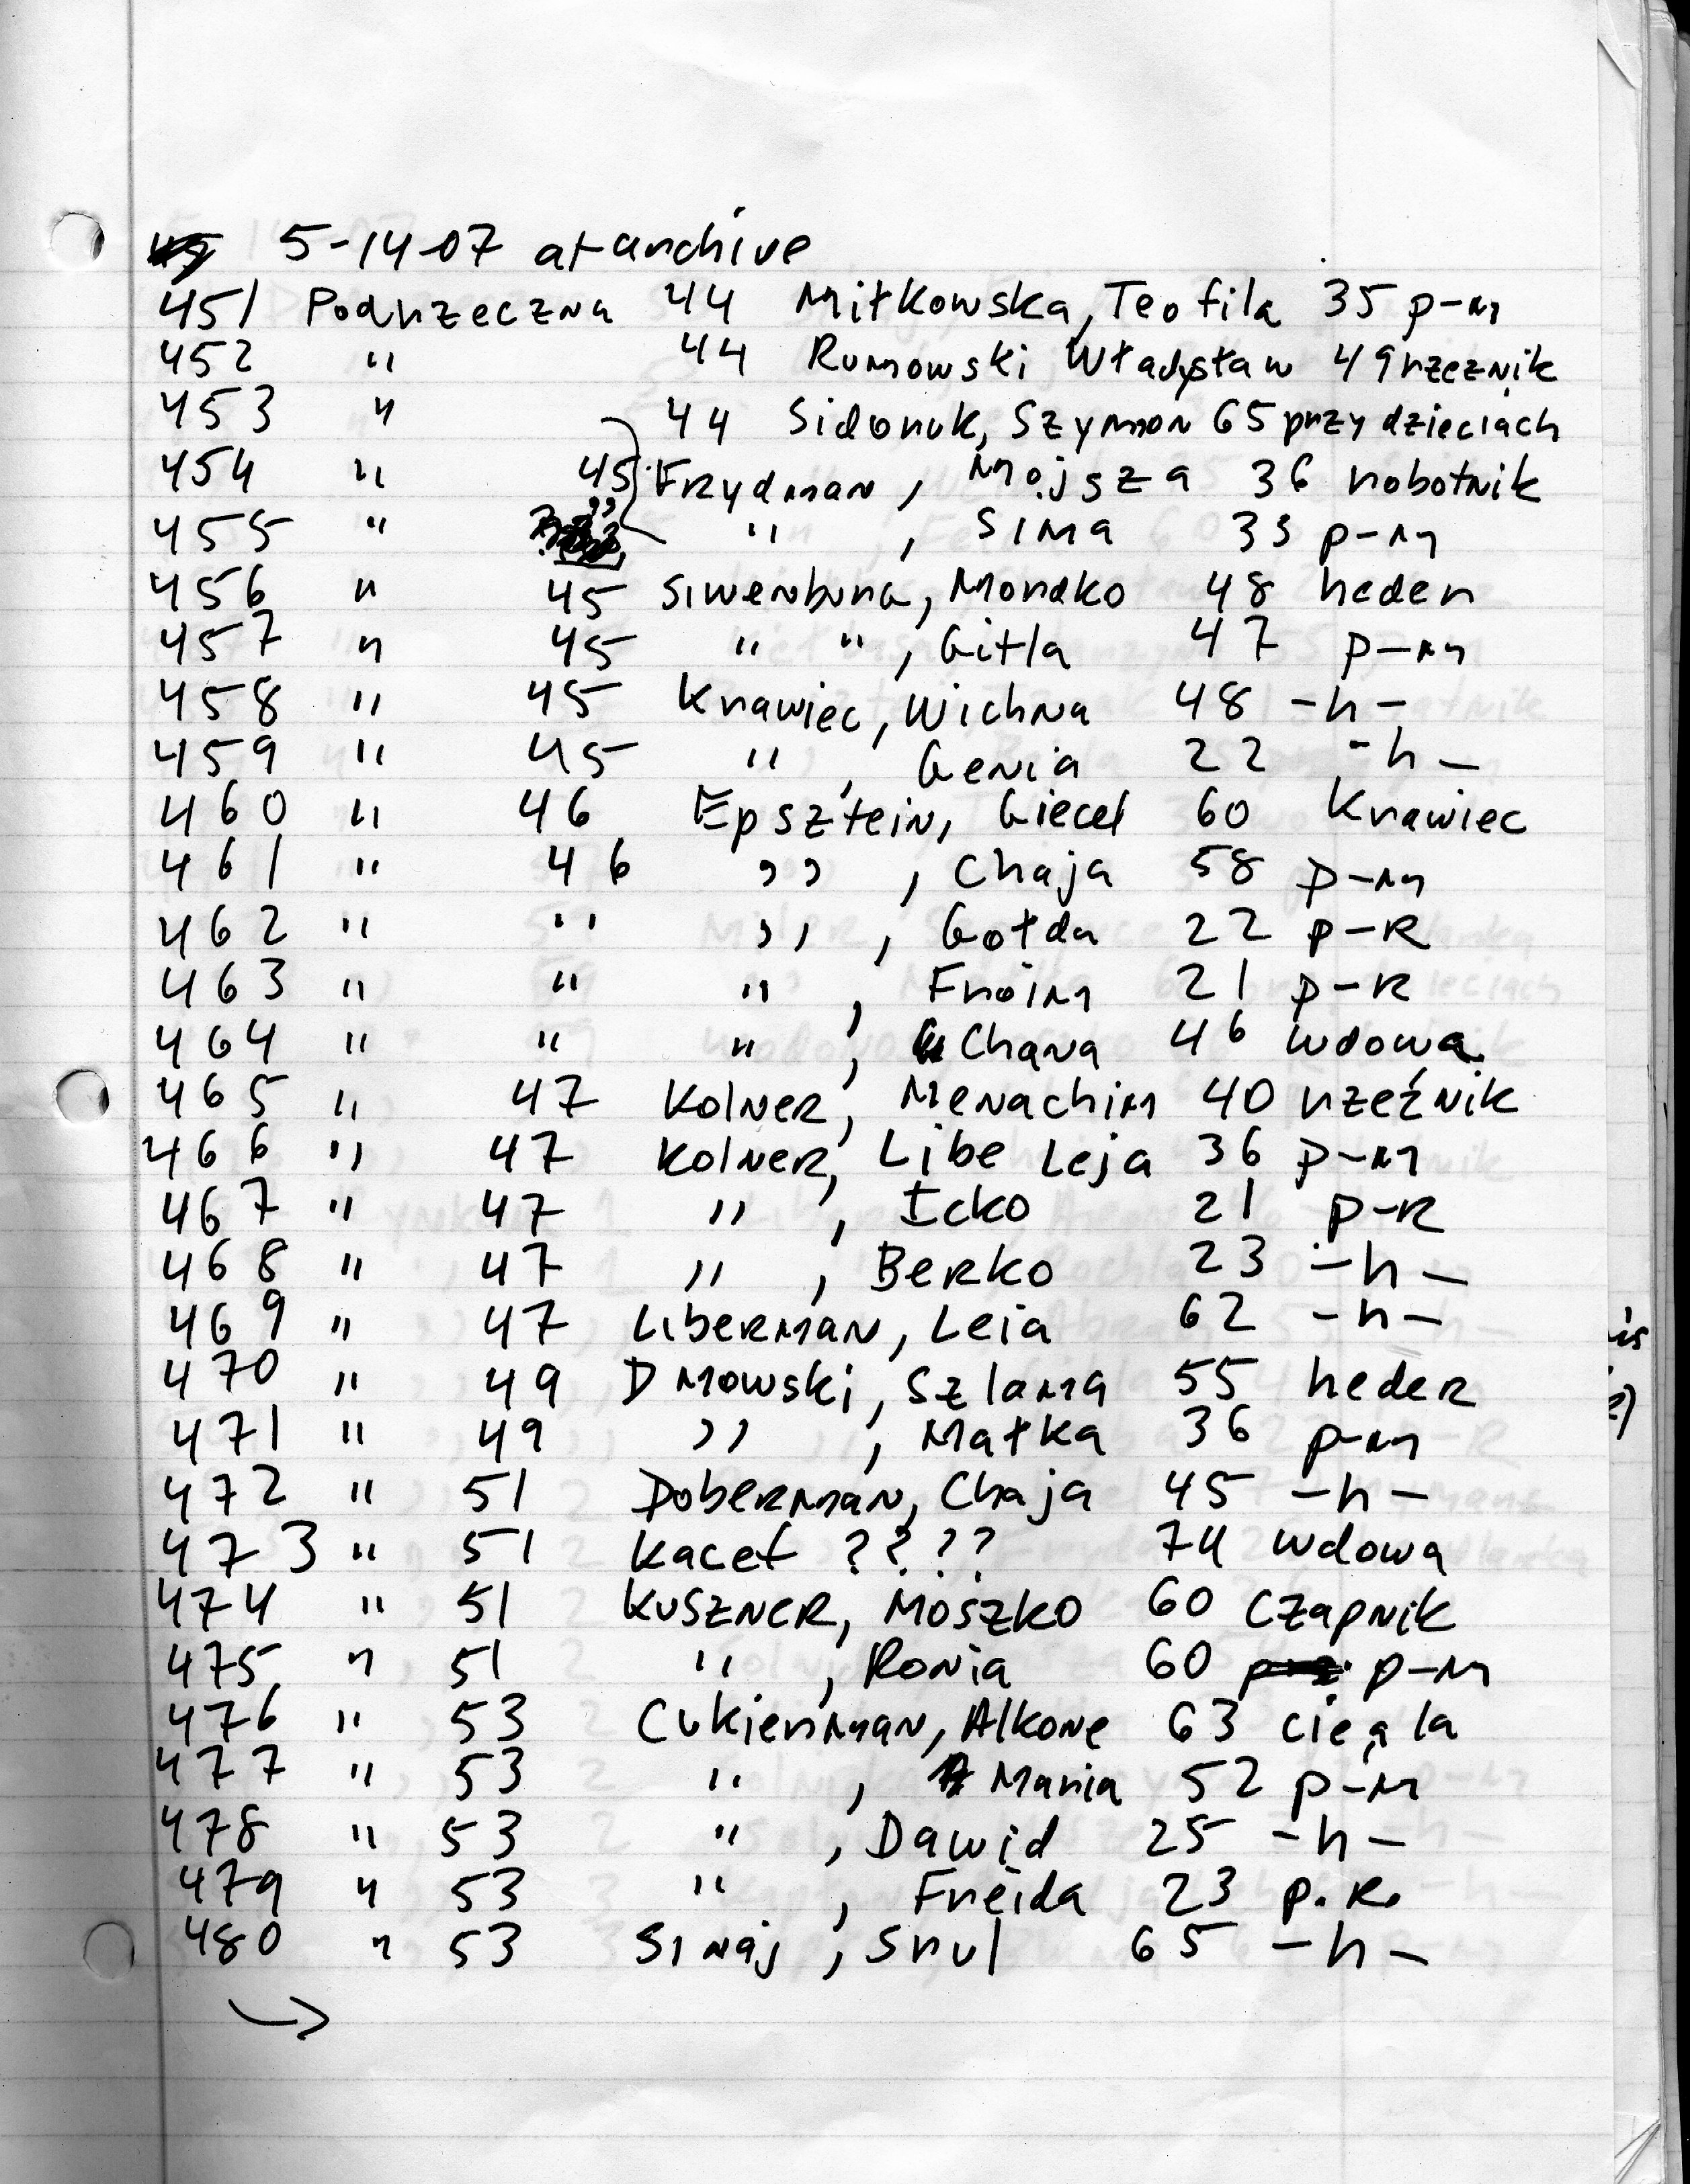 5-14-07 at archive
451 Podrzeczna 44 Miłkowska, Teofila 35 p-m
452 " 44 Rumowski Władysław 49 rzeznik
453 " 44 Sidoruk, Szymon 65 przy dzieciach
454 " 45 Frydman, Mojsza 36 robotnik
455 " " " , Sima 33 p-m
456 " 45 Siwerbura, Mordko 48 heder
457 " 45 " " , Gitla 47 p-m
458 " 45 Krawiec, Wichna 48 -h-
459 " 45 " , Genia 22 -h-
460 " 46 Epsztein, Giecel 60 Krawiec
461 " 46 " , Chaja 58 p-m
462 " " " , Gołda 22 p-R
463 " " " , Froim 21 p-R
464 " " " , Chana 46 wdowa
465 " 47 Kolner, Menachim 40 rzeźnik
466 " 47 Kolner, Libe Leja 36 p-m
467 " 47 " , Icko 21 p-R
468 " 47 " , Berko 23 -h-
469 " 47 Liberman, Leia 62 -h-
470 " 49 Dmowski, Szlama 55 heder
471 " 49 " , Małka 36 p-m
472 " 51 Doberman, Chaja 45 -h-
473 " 51 Kacef ???? 74 wdowa
474 " 51 Kuszner, Moszko 60 czapnik
475 " 51 " , Ronia 60 p-m
476 " 53 Cukierman, Alkone 63 ciegla
477 " 53 " , Maria 52 p-m
478 " 53 " , Dawid 25 -h-
479 " 53 " , Freida 23 p.R.
480 " 53 Sinaj, Srul 65 -h-
→